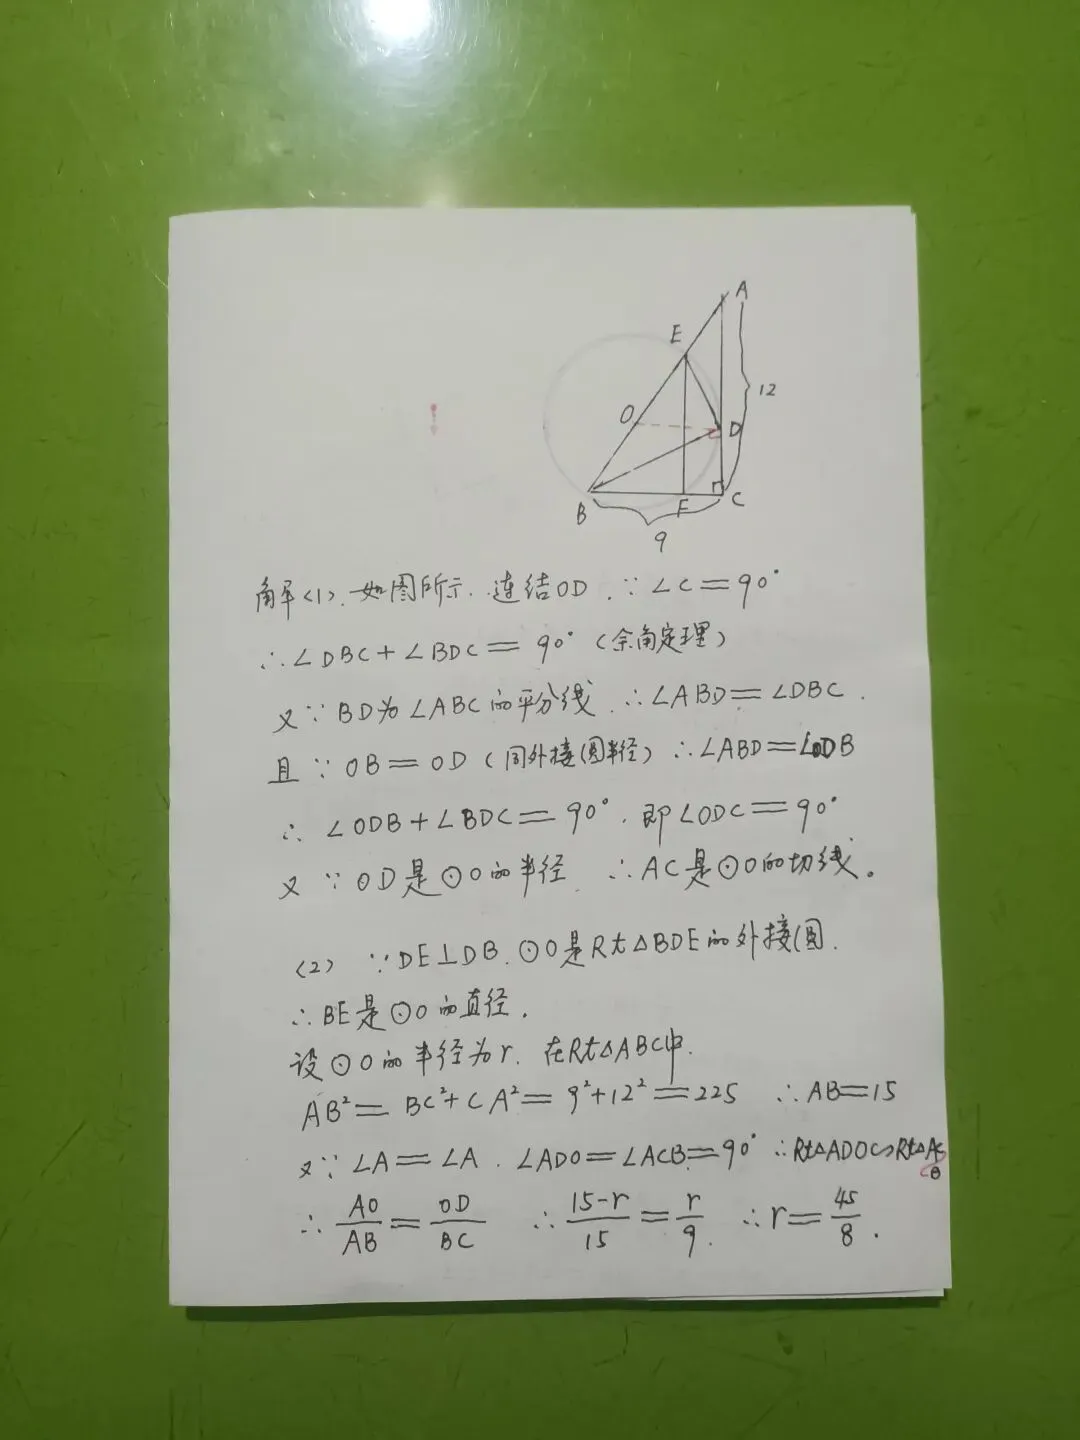 A
E
12
O
D
B
F
C
9
解(1).如图所示.连结OD.∵∠C=90°
∴∠DBC+∠BDC=90°(余角定理)
又∵BD为∠ABC的平分线.∴∠ABD=∠DBC.
且∵OB=OD(同外接圆半径)∴∠ABD=∠ODB
∴∠ODB+∠BDC=90°.即∠ODC=90°
又∵OD是⊙O的半径∴AC是⊙O的切线。
(2)∵DE⊥DB.⊙O是Rt△BDE的外接圆.
∴BE是⊙O的直径.
设⊙O的半径为r.在Rt△ABC中.
AB²=BC²+CA²=9²+12²=225 ∴AB=15
又∵∠A=∠A.∠ADO=∠ACB=90°∴Rt△ADO∽Rt△ACB
∴AO/AB=OD/BC ∴(15-r)/15=r/9.∴r=45/8.